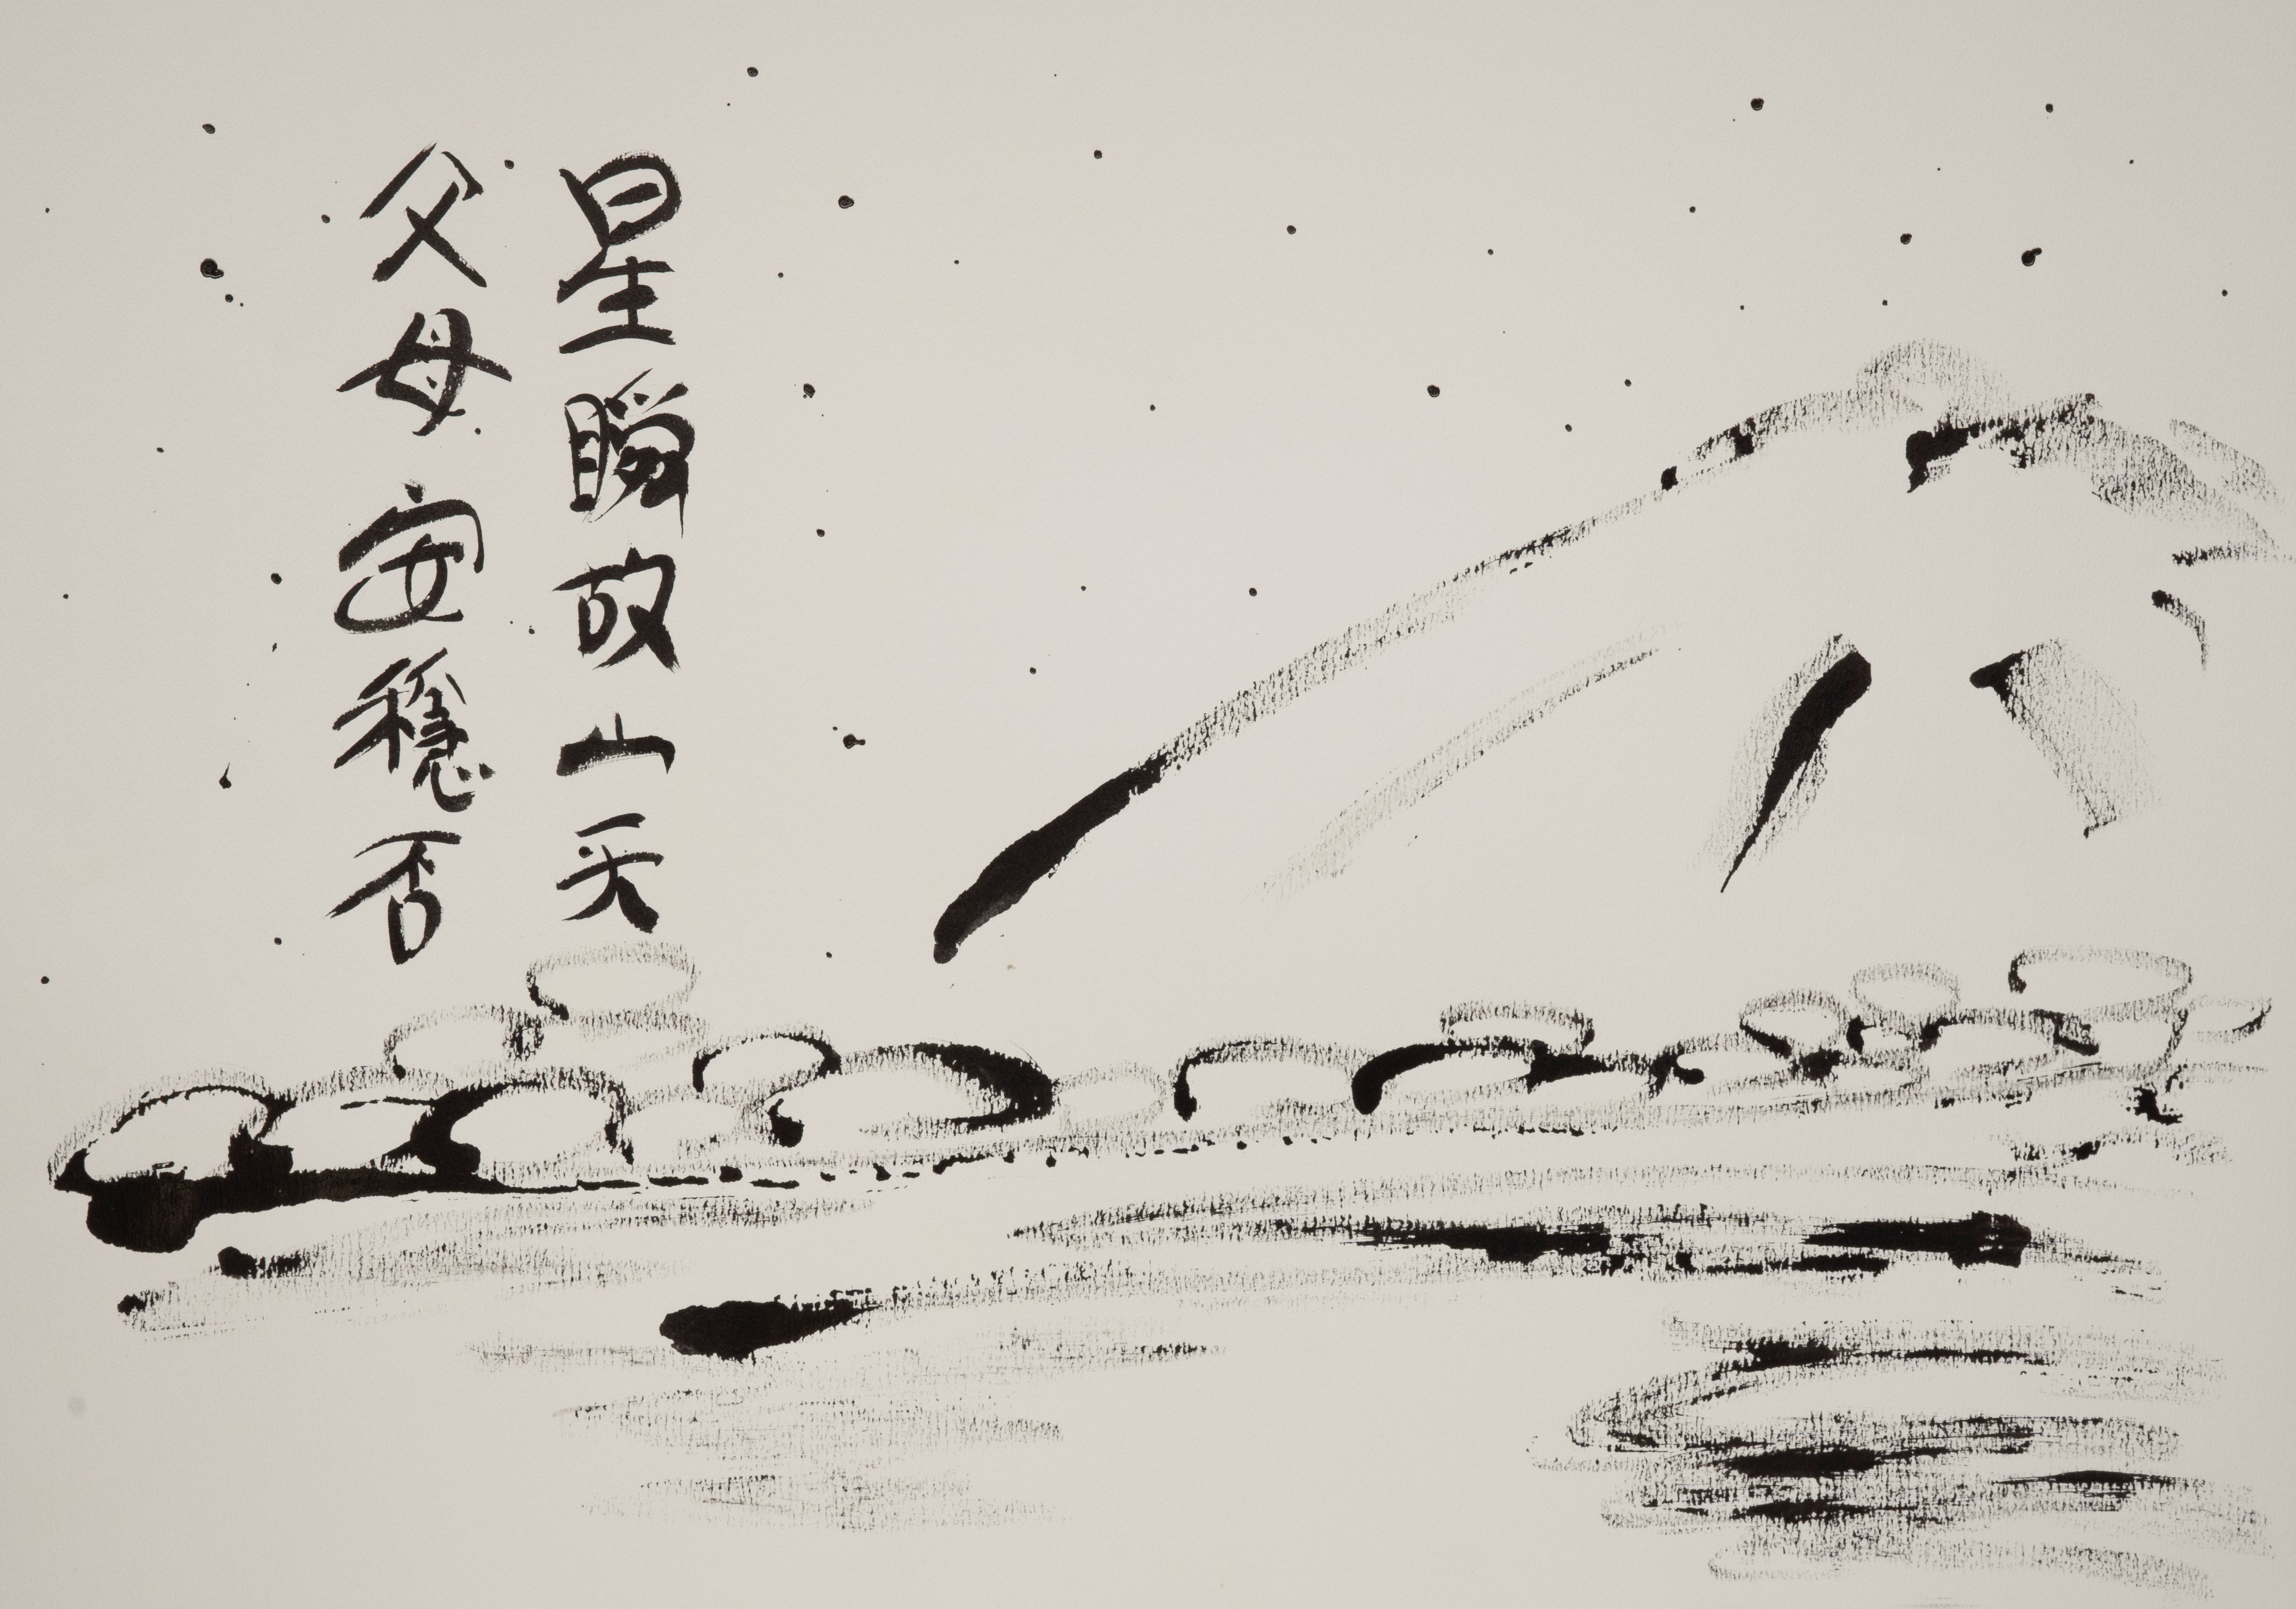 星瞬故山天
父母安穏否